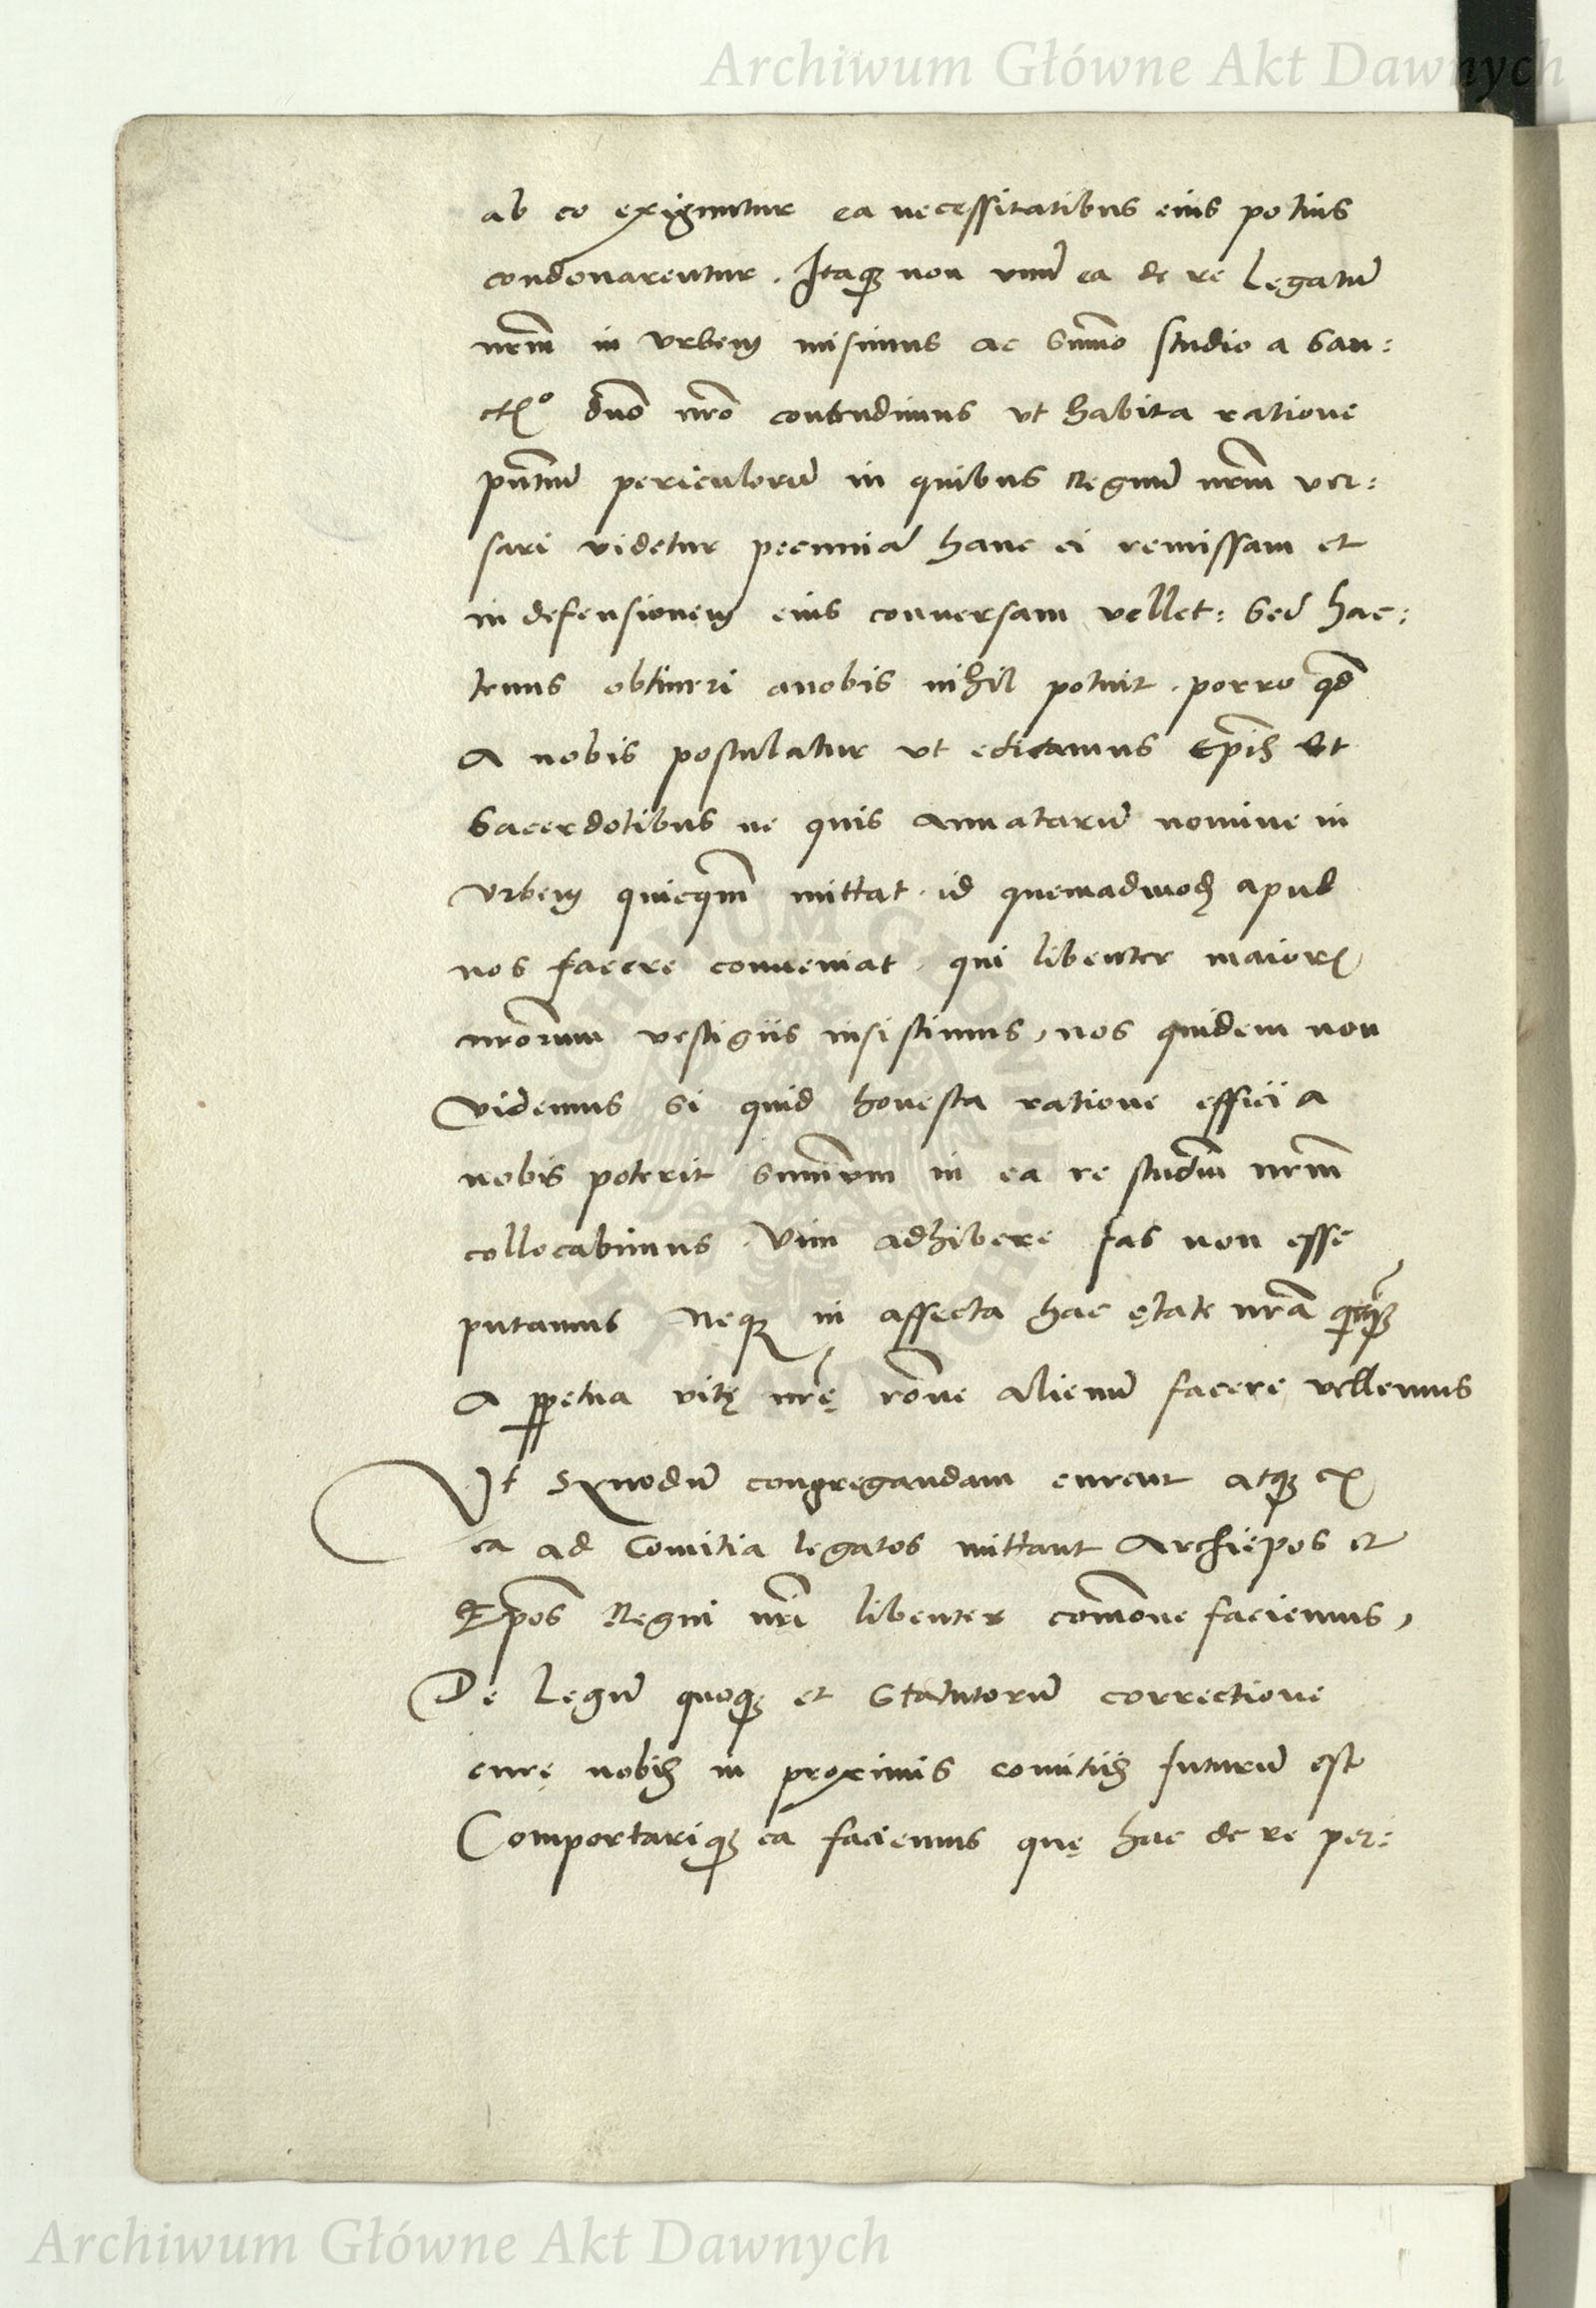 Archiwum Główne Akt Dawnych
ab eo exiguntur ea necessitatibus eius potius
condonarentur. Itaqȝ non unū ea de re Legatū
nrm̄ in Vrbem misimus ac sum̄o studio a san:
ctis.º dn̄o nr̄o contendimus ut habita ratione
pn̄tiū periculorū in quibus Regnū nrm̄ ver:
sari videtur pecuniā hanc ei remissam et
in defensionem eius conversam vellet: sed hac:
tenus obtineri anobis nihil potuit. porro qđ
A nobis postulatur ut edicamus Ep̄is et
Sacerdotibus ne quis Annatarū nomine in
Vrbem quicqm̄ mittat. id quemadmodȝ apud
nos facere conveniat, qui libenter maiorȝ
nr̄orum vestigiis insistimus, nos quidem non
videmus si quid honesta ratione effici a
nobis poterit sum̄um in ea re studiū nrm̄
collocabimus. Vim adhibere fas non esse
putamus Neqȝ in affecta hac ętate nr̄a
A ꝑpetua vitę nr̄ę rōne Alienū facere vellemus
Vt Synodū congregandam curent atqȝ ex
ea ad Comitia legatos mittant Archiepos et
Ep̄os Regni nr̄i libenter com̄one faciemus,
De Legū quoqȝ et Statutorū correctione
curę nobis in proximis comitiis futurū est
Comportariqȝ ea faciemus quę hac de re per:
ARCHIWUM GŁÓWNE
Archiwum Główne Akt Dawnych